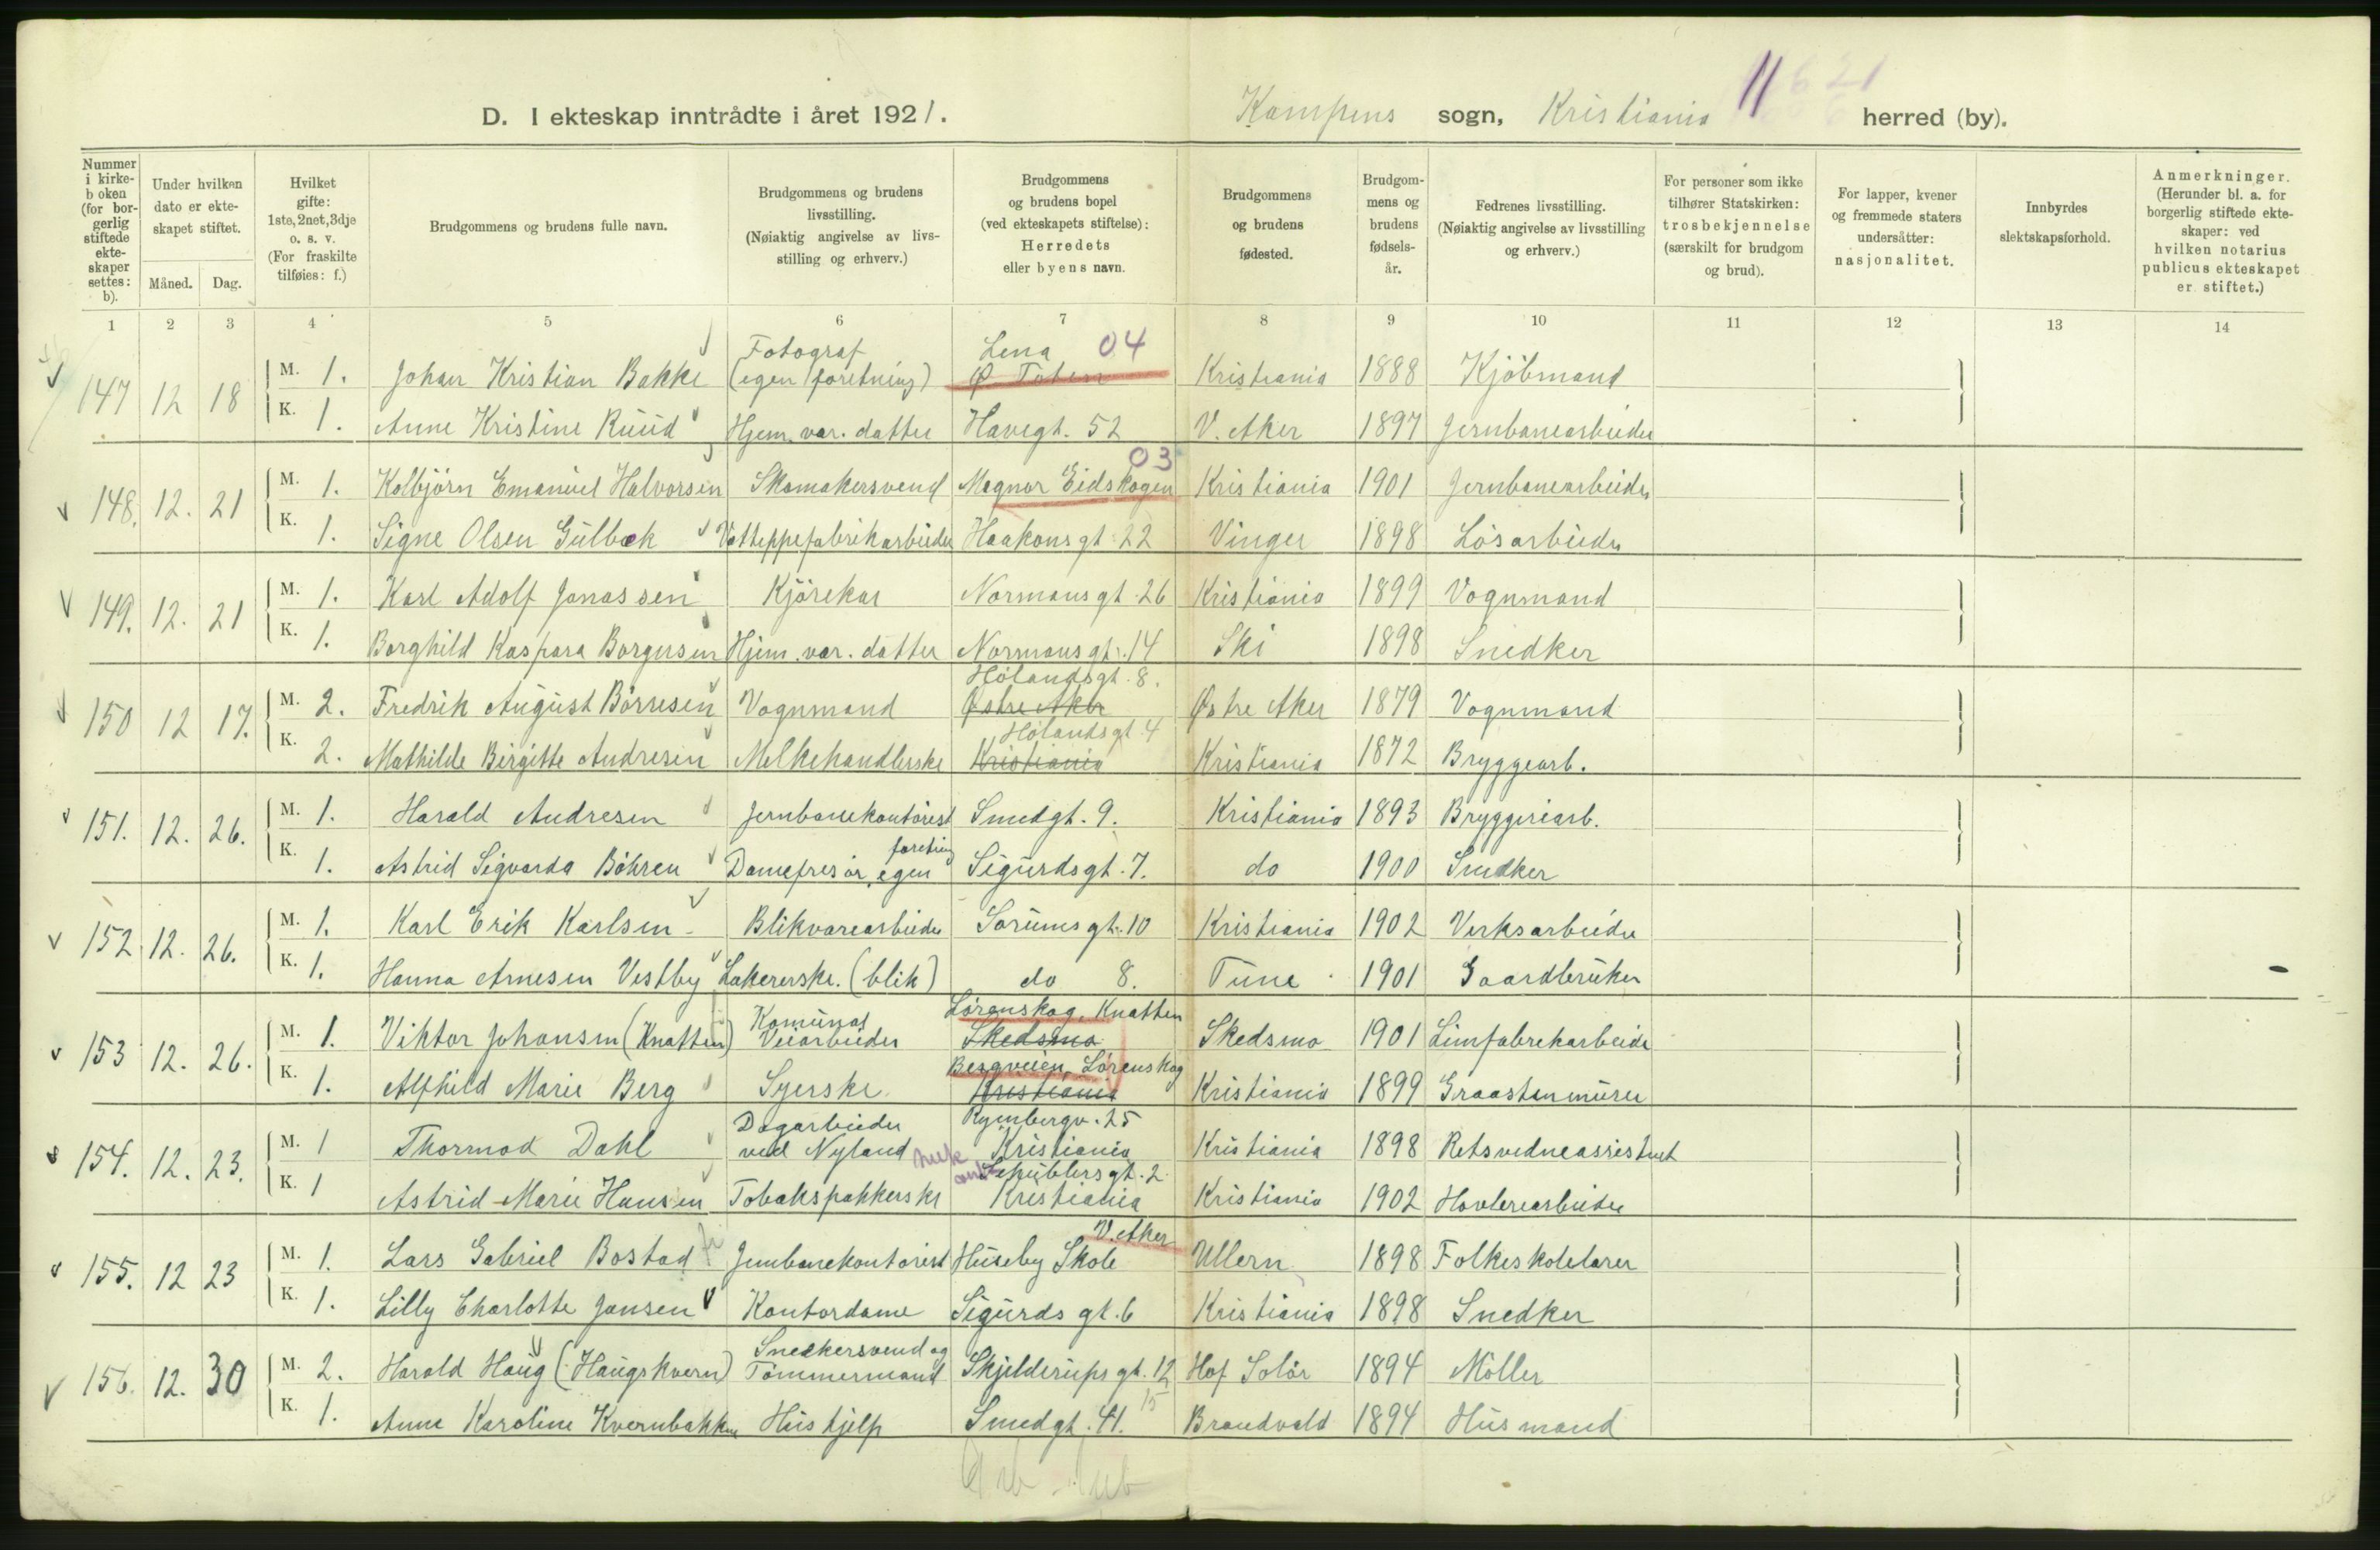 11 6 21
D. I ekteskap inntrådte i året 1921. Kampens sogn, Kristiania herred (by).
Nummer i kirkeboken (for borgerlig stiftede ekteskaper settes: b).
Under hvilken dato er ekteskapet stiftet.
Måned. Dag.
Hvilket gifte: 1ste, 2net, 3dje o. s. v. (For fraskilte tilføies: f.)
Brudgommens og brudens fulle navn.
Brudgommens og brudens livsstilling. (Nøiaktig angivelse av livsstilling og erhverv.)
Brudgommens og brudens bopel (ved ekteskapets stiftelse): Herredets eller byens navn.
Brudgommens og brudens fødested.
Brudgommens og brudens fødselsår.
Fedrenes livsstilling. (Nøiaktig angivelse av livsstilling og erhverv.)
For personer som ikke tilhører Statskirken: trosbekjennelse (særskilt for brudgom og brud).
For lapper, kvener og fremmede staters undersåtter: nasjonalitet.
Innbyrdes slektskapsforhold.
Anmerkninger. (Herunder bl. a. for borgerlig stiftede ekteskaper: ved hvilken notarius publicus ekteskapet er stiftet.)
1 2 3 4 5 6 7 8 9 10 11 12 13 14
Fotograf Lena 04
147 12 18 M. 1. Johan Kristian Bakke (egen foretning) Ø. Toten Kristiania 1888 Kjöbmand
K. 1. Anne Kristine Ruud Hjem. var. datter Havegt. 52 V. Aker 1897 Jernbanearbeider
03
148. 12. 21 M. 1. Kolbjörn Emanuel Halvorsen Skomakersvend Magnor Eidskogen Kristiania 1901 Jernbanearbeider
K. 1. Signe Olsen Gulbæk Vatteppefabrikarbeider Haakonsgt. 22 Vinger 1898 Lösarbeider
149. 12. 21 M. 1. Karl Adolf Jonassen Kjörekar Normansgt. 26 Kristiania 1899 Vognmand
K. 1. Borghild Kaspara Borgersen Hjem. var. datter Normansgt. 14 Ski 1898 Snedker
Hölandsgt. 8.
150 12 17. M. 2. Fredrik August Börresen Vognmand Østre Aker Østre Aker 1879 Vognmand
Hölandsgt. 4
K. 2. Mathilde Birgitte Andresen Melkehandlerske Kristiania Kristiania 1872 Bryggearb.
151. 12. 26. M. 1. Harald Andresen Jernbanekontorist Smedgt. 9. Kristiania 1893 Bryggeriarb.
foretning
K. 1. Astrid Sigvarda Böhren Damefrisör, egen Sigurdsgt. 7. do 1900 Snedker
152 12. 26. M. 1. Karl Erik Karlsen Blikvarearbeider Sörumsgt. 10 Kristiania 1902 Verksarbeider
K. 1. Hanna Arnesen Vestby Lakererske. (blik) do 8. Tune 1901 Gaardbruker
Komunal Lørenskog, Knatten
153 12. 26. M. 1. Viktor Johansen (Knatten) Veiarbeider Skedsmo Skedsmo 1901 Limfabrikarbeider
Bergveien, Lörenskog
K. 1. Alfhild Marie Berg Syerske Kristiania Kristiania 1899 Graastenmurer
Dagarbeider Rymbergv. 25
154. 12. 23. M. 1 Thormod Dahl ved Nyland Kristiania Kristiania 1898 Retsvidneassistent
Schüblersgt. 2.
K. 1 Astrid Marie Hansen Tobakspakkerske Kristiania Kristiania 1902 Høvleriarbeider
V. Aker
155. 12 23 M. 1. Lars Gabriel Bostad Jernbanekontorist Huseby Skole Ullern 1898 Folkeskolelærer
K. 1. Lilly Charlotte Jansen Kontordame Sigurds gt. 6 Kristiania 1898 Snedker
Snedkersvend og
156. 12. 30 M. 2. Harald Haug (Haugskvern) Tömmermand Skjelderupsgt. 12 Hof Solör 1894 Möller
15
K. 1. Anne Karoline Kvernbakken Hushjelp Smedgt. 41. Brandvald 1894 Husmand